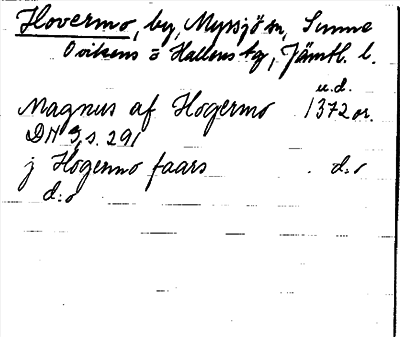 Hovermo, by, Myrsjö sn, Sunne
Ovikens o Hallens tg, Jämtl. l.
u.d.
Magnus af Hogermo 1372 or.
DN 9, s. 291
j Hogermo faars . d:o
d:o